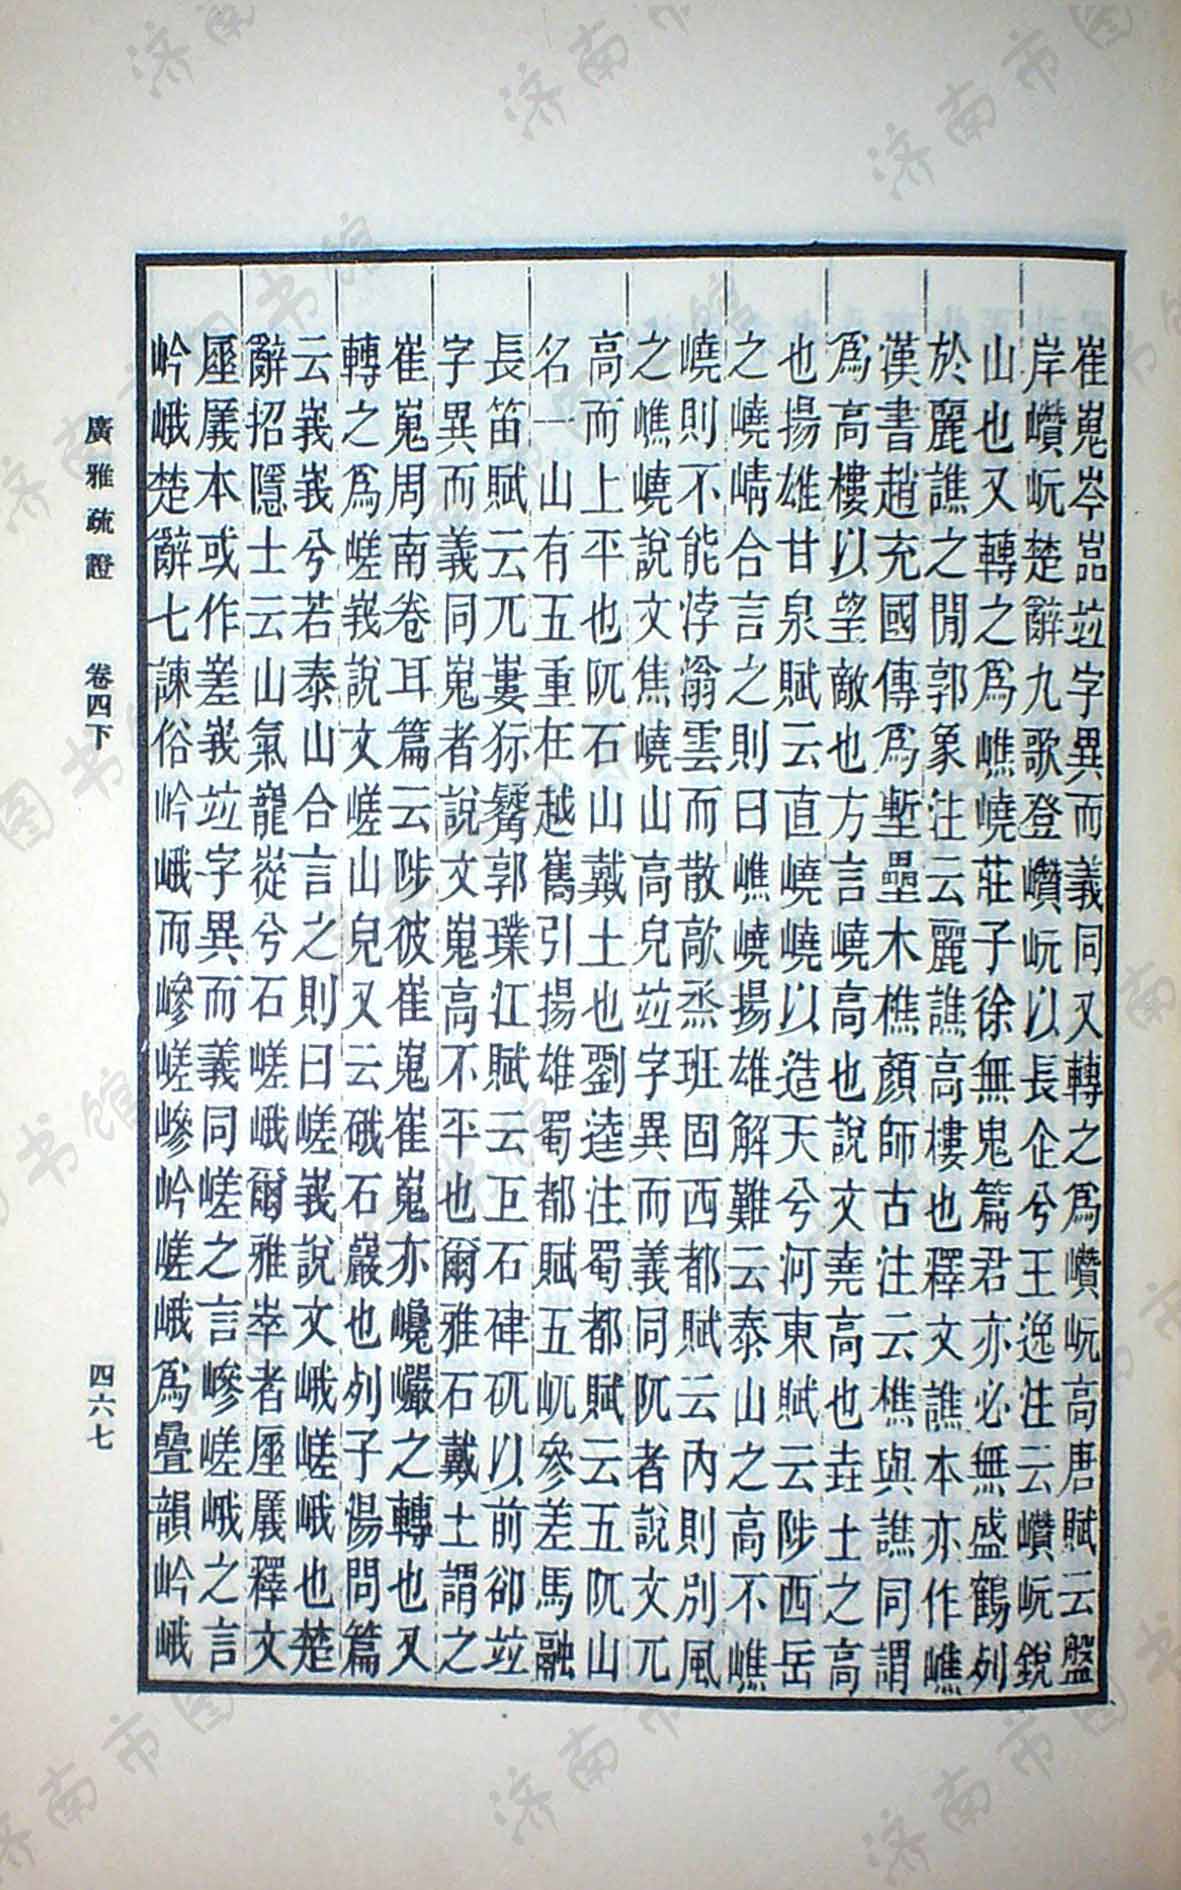 崔嵬岑嵓竝字異而義同又轉之爲巑岏高唐賦云盤
岸巑岏楚辭九歌登巑岏以長企兮王逸注云巑岏銳
山也又轉之爲嶕嶢莊子徐無鬼篇君亦必無盛鶴列
於麗譙之閒郭象注云麗譙高樓也釋文譙本亦作嶕
漢書趙充國傳爲壍壘木樵顏師古注云樵與譙同謂
爲高樓以望敵也方言嶢高也說文堯高也垚土之高
也揚雄甘泉賦云直嶢嶢以造天兮河東賦云陟西岳
之嶢崝合言之則曰嶕嶢揚雄解難云泰山之高不嶕
嶢則不能浡滃雲而散歊烝班固西都賦云內則別風
之嶕嶢說文焦嶢山高皃竝字異而義同阮者說文兀
高而上平也阮石山戴土也劉逵注蜀都賦云五阮山
名一山有五重在越巂引揚雄蜀都賦五岏參差馬融
長笛賦云兀婁狋觺郭璞江賦云巨石硉矹以前卻竝
字異而義同嵬者說文嵬高不平也爾雅石戴土謂之
崔嵬周南卷耳篇云陟彼崔嵬崔嵬亦巉巖之轉也又
轉之爲嵯峩說文嵯山皃又云硪石巖也列子湯問篇
云峩峩兮若泰山合言之則曰嵯峩說文峨嵯峨也楚
辭招隱士云山氣巃嵸兮石嵯峨爾雅崒者厜㕒釋文
厜㕒本或作嵳峩竝字異而義同嵯之言嵾嵯峨之言
岒峨楚辭七諫俗岒峨而嵾嵯嵾岒嵯峨爲疊韻岒峨
廣雅疏證 卷四下 四六七
濟南市圖書館